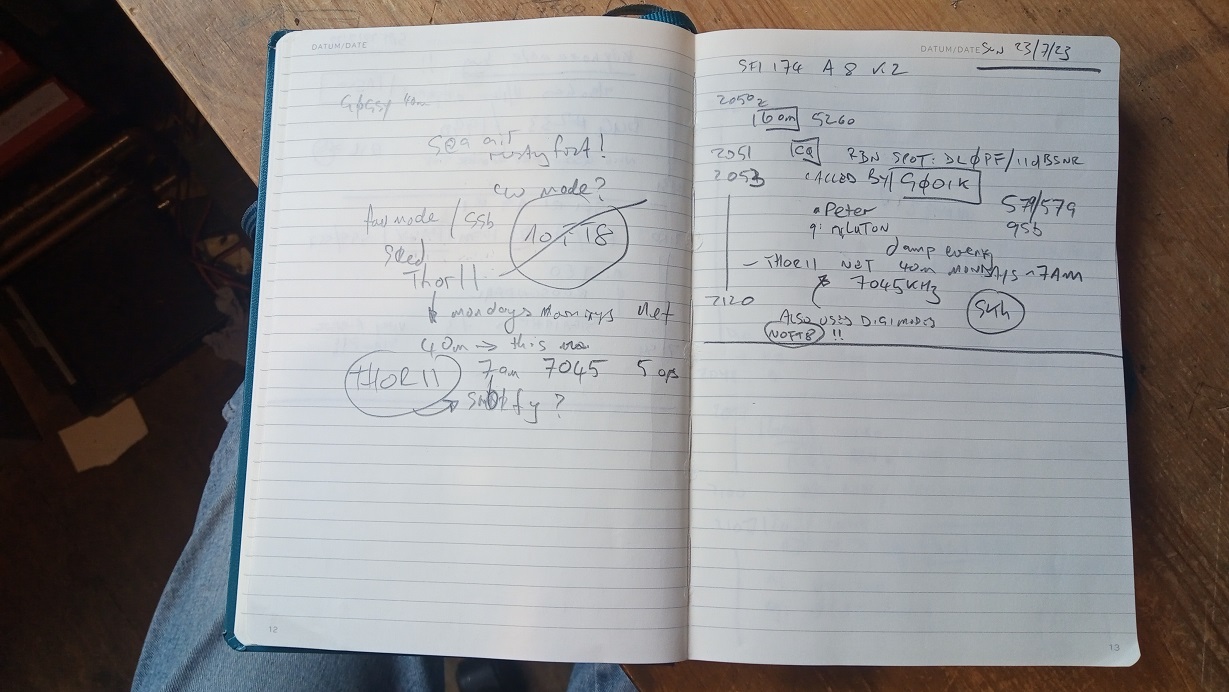 DATUM/DATE
40m
Sea air
rusty fort!
cw mode?
fav mode / SSB
Thor 11
mondays mornings net
40m → this
THOR 11 7am 7045 5 ops
fy?
12
DATUM/DATE Sun 23/7/23
SFI 174 A 8 K 2
2050z
160m
2051 CQ RBN SPOT: DLØPF/11dBSNR
2053 CALLED BY GØOIK
Peter 579/579
q: nr LUTON QSB
damp evening
- THOR11 NET 40m MONDAYS ~7AM
7045KHz
2120
ALSO USES DIGIMODES
NOFT8 !!
13